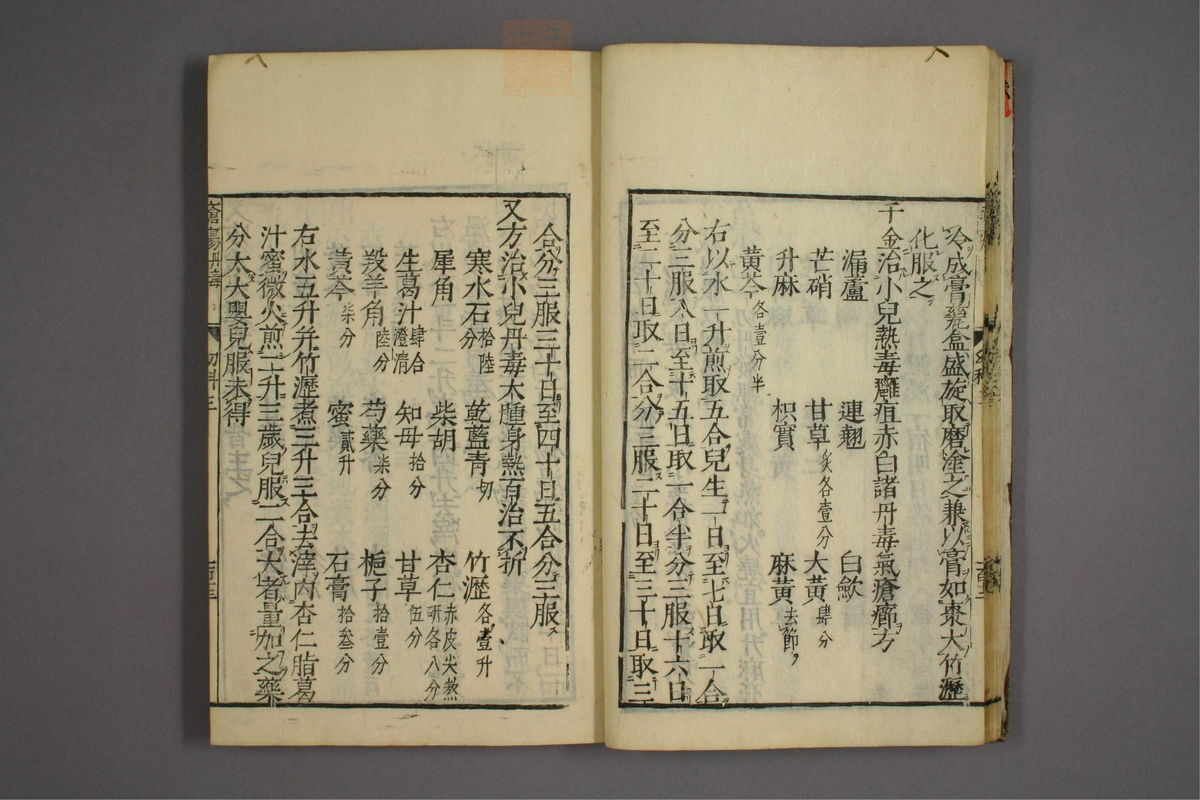 冷成膏甆盒盛旋取磨塗之兼以膏如棗大竹瀝
化服之
千金治小兒熱毒癰疽赤白諸丹毒氣瘡癤方
漏蘆　連翹　白歛
芒硝　甘草炙各壹分　大黃肆分
升麻　枳實　麻黃去節
黃芩各壹分半
右以水一升煎取五合兒生一日至七日取一合
分三服八日至十五日取一合半分三服十六日
至二十日取二合分三服二十日至三十日取三
合分三服三十日至四十日五合分三服
又方治小兒丹毒大腫身熱百治不折
寒水石拾陸分　乾藍青切　竹瀝各壹升
犀角　柴胡　杏仁赤皮尖熬研各八分
生葛汁肆合澄清　知母拾分　甘草伍分
羖羊角陸分　芍藥柒分　梔子拾壹分
黃芩柒分　蜜貳升　石膏拾叁分
右水五升并竹瀝煮三升三合去滓內杏仁脂葛
汁蜜微火煎二升三歲兒服二合大者量加之藥
分太大嬰兒服未得
瘡瘍丹毒　幼科三